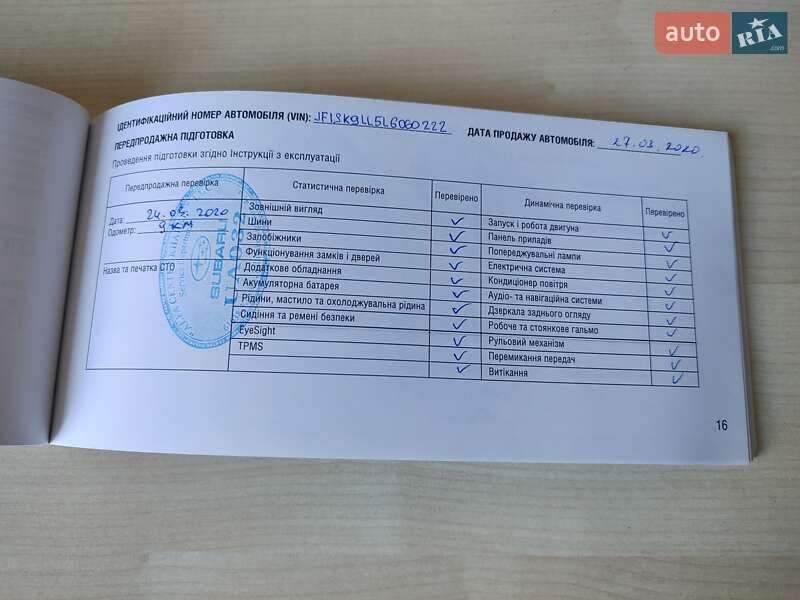 auto RIA .com
ІДЕНТИФІКАЦІЙНИЙ НОМЕР АВТОМОБІЛЯ (VIN): JF1SK9LL5LG060222 ДАТА ПРОДАЖУ АВТОМОБІЛЯ: 27.03.2020.
ПЕРЕДПРОДАЖНА ПІДГОТОВКА
Проведення підготовки згідно Інструкції з експлуатації
Передпродажна перевірка Статистична перевірка Перевірено Динамічна перевірка Перевірено
Дата: 24.03.2020
Одометр: 9 км
Назва та печатка СТО
SUBARU
UA032
Зовнішній вигляд
Шини ✓ Запуск і робота двигуна ✓
Запобіжники ✓ Панель приладів ✓
Функціонування замків і дверей ✓ Попереджувальні лампи ✓
Додаткове обладнання ✓ Електрична система ✓
Акумуляторна батарея ✓ Кондиціонер повітря ✓
Рідини, мастило та охолоджувальна рідина ✓ Аудіо- та навігаційна системи ✓
Сидіння та ремені безпеки ✓ Дзеркала заднього огляду ✓
EyeSight ✓ Робоче та стоянкове гальмо ✓
TPMS ✓ Рульовий механізм ✓
✓ Перемикання передач ✓
✓ Витікання ✓
16